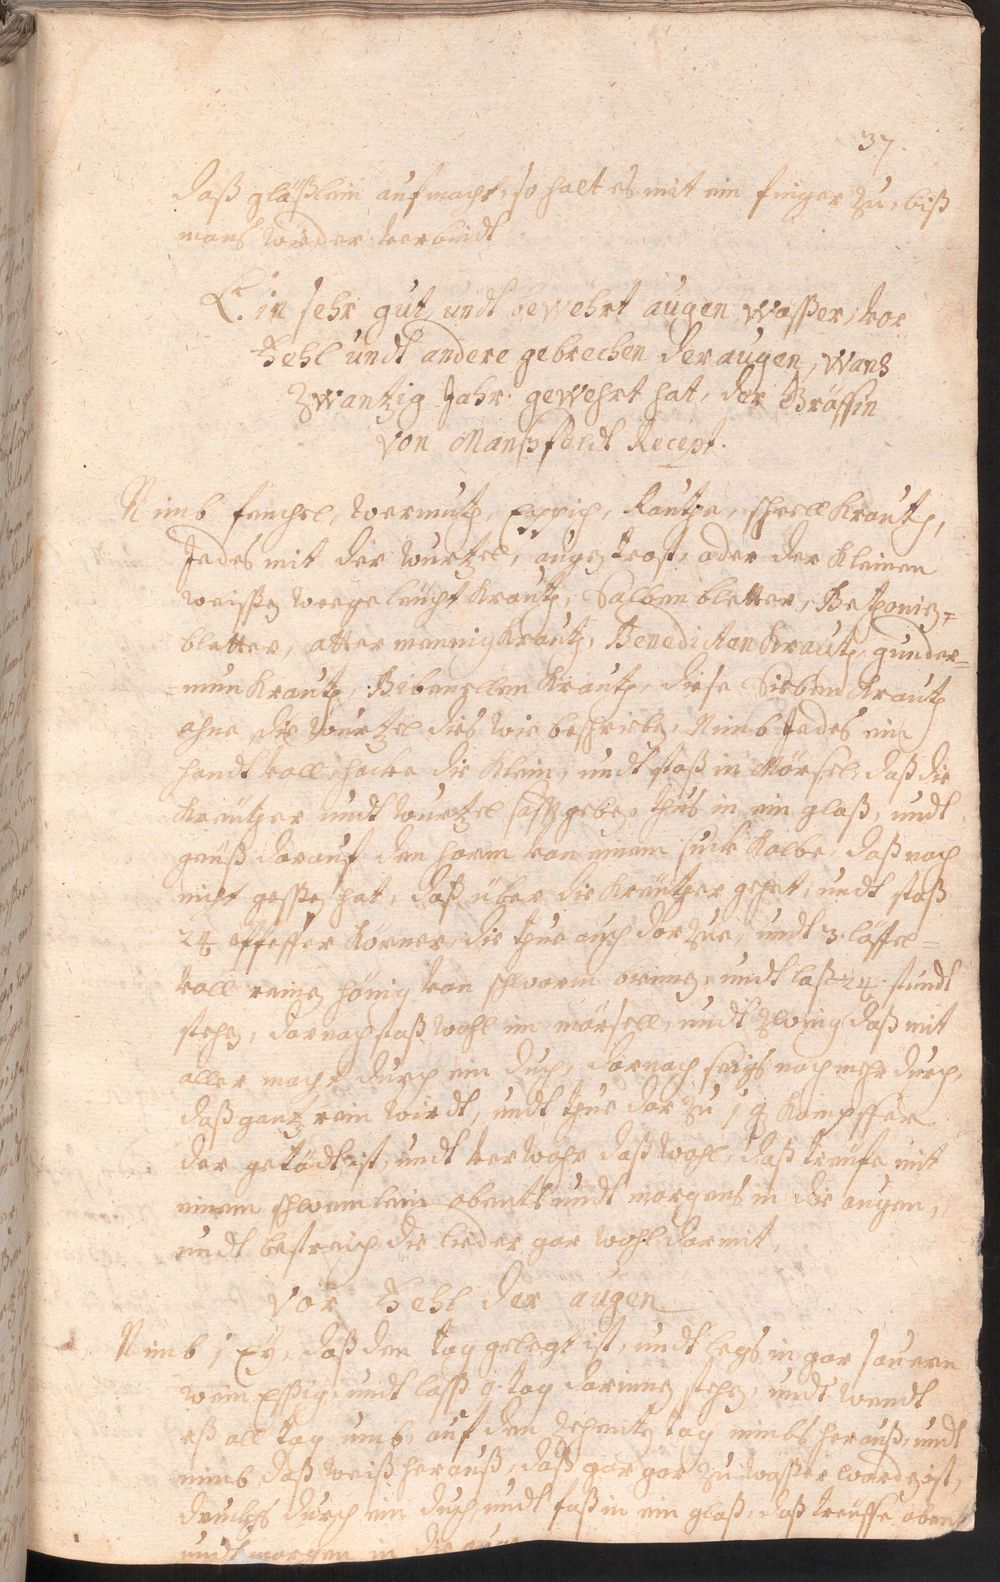 37.
daß gläßlein aufmacht, so halt es mit ein finger zu, biß
mans wieder verbindt
Ein sehr gut undt bewehrt augen wasser, vor
Fehl undt andere gebrechen der augen, wans
zwantzig Jahr gewehrt hat, der Gräffin
von Manßfeldt Recept.
Nimb fenchel, wermuth, Eppich, Rauthe, schellkrauth,
Jedes mit der wurtzel, augen trost, oder der kleinen
weissen weege krauth, Salbenbletter, Bethonien=
bletter, ottermennigkrauth, Benedicten krauth, gunder=
=mun krauth, Bibenellen krauth, diese Sieben krauth
ohne die wurtzel dies wie beschrieben, Nimb Jedes ein
handt voll, hacke die klein, undt stoß in Mörsel, daß die
kreüther undt wurtzel safft geben, thus in ein glaß, undt
geüß darauf den harm von einem kalbe, daß noch
nicht gessen hat, daß über die kreüther gehet, undt stoß
24 Pfeffer körner, die thue auch darzue, undt 3. löffel=
voll reinen hönig von undt laß 24 stundt
stehen, darnach stoß wohl im mörsell, undt zwing daß mit
aller macht durch ein duch, darnach seigs noch mehr durch,
daß gantz rein wirdt, undt thue darzu 1 q kampffer
der getödt ist, undt verwahr daß wohl, daß treüfe mit
einem schwemlein abents undt morgens in die augen,
undt bestreich die lieder gar wohl darmit,
Vor Fehl der augen
Nimb 1 Ey, daß den tag gelegt ist, undt legs in gar sauern
wein Essig, undt lasß 9. tag darinnen stehen, undt wendt
eß all tag umb, auf den zehenten tag nimbs herauß, undt
nimb daß weiß herauß, daß gar zu wasser worden ist,
drucks durch ein duch, undt faß in ein glaß, daß treüffe abens
undt morgen in die augen